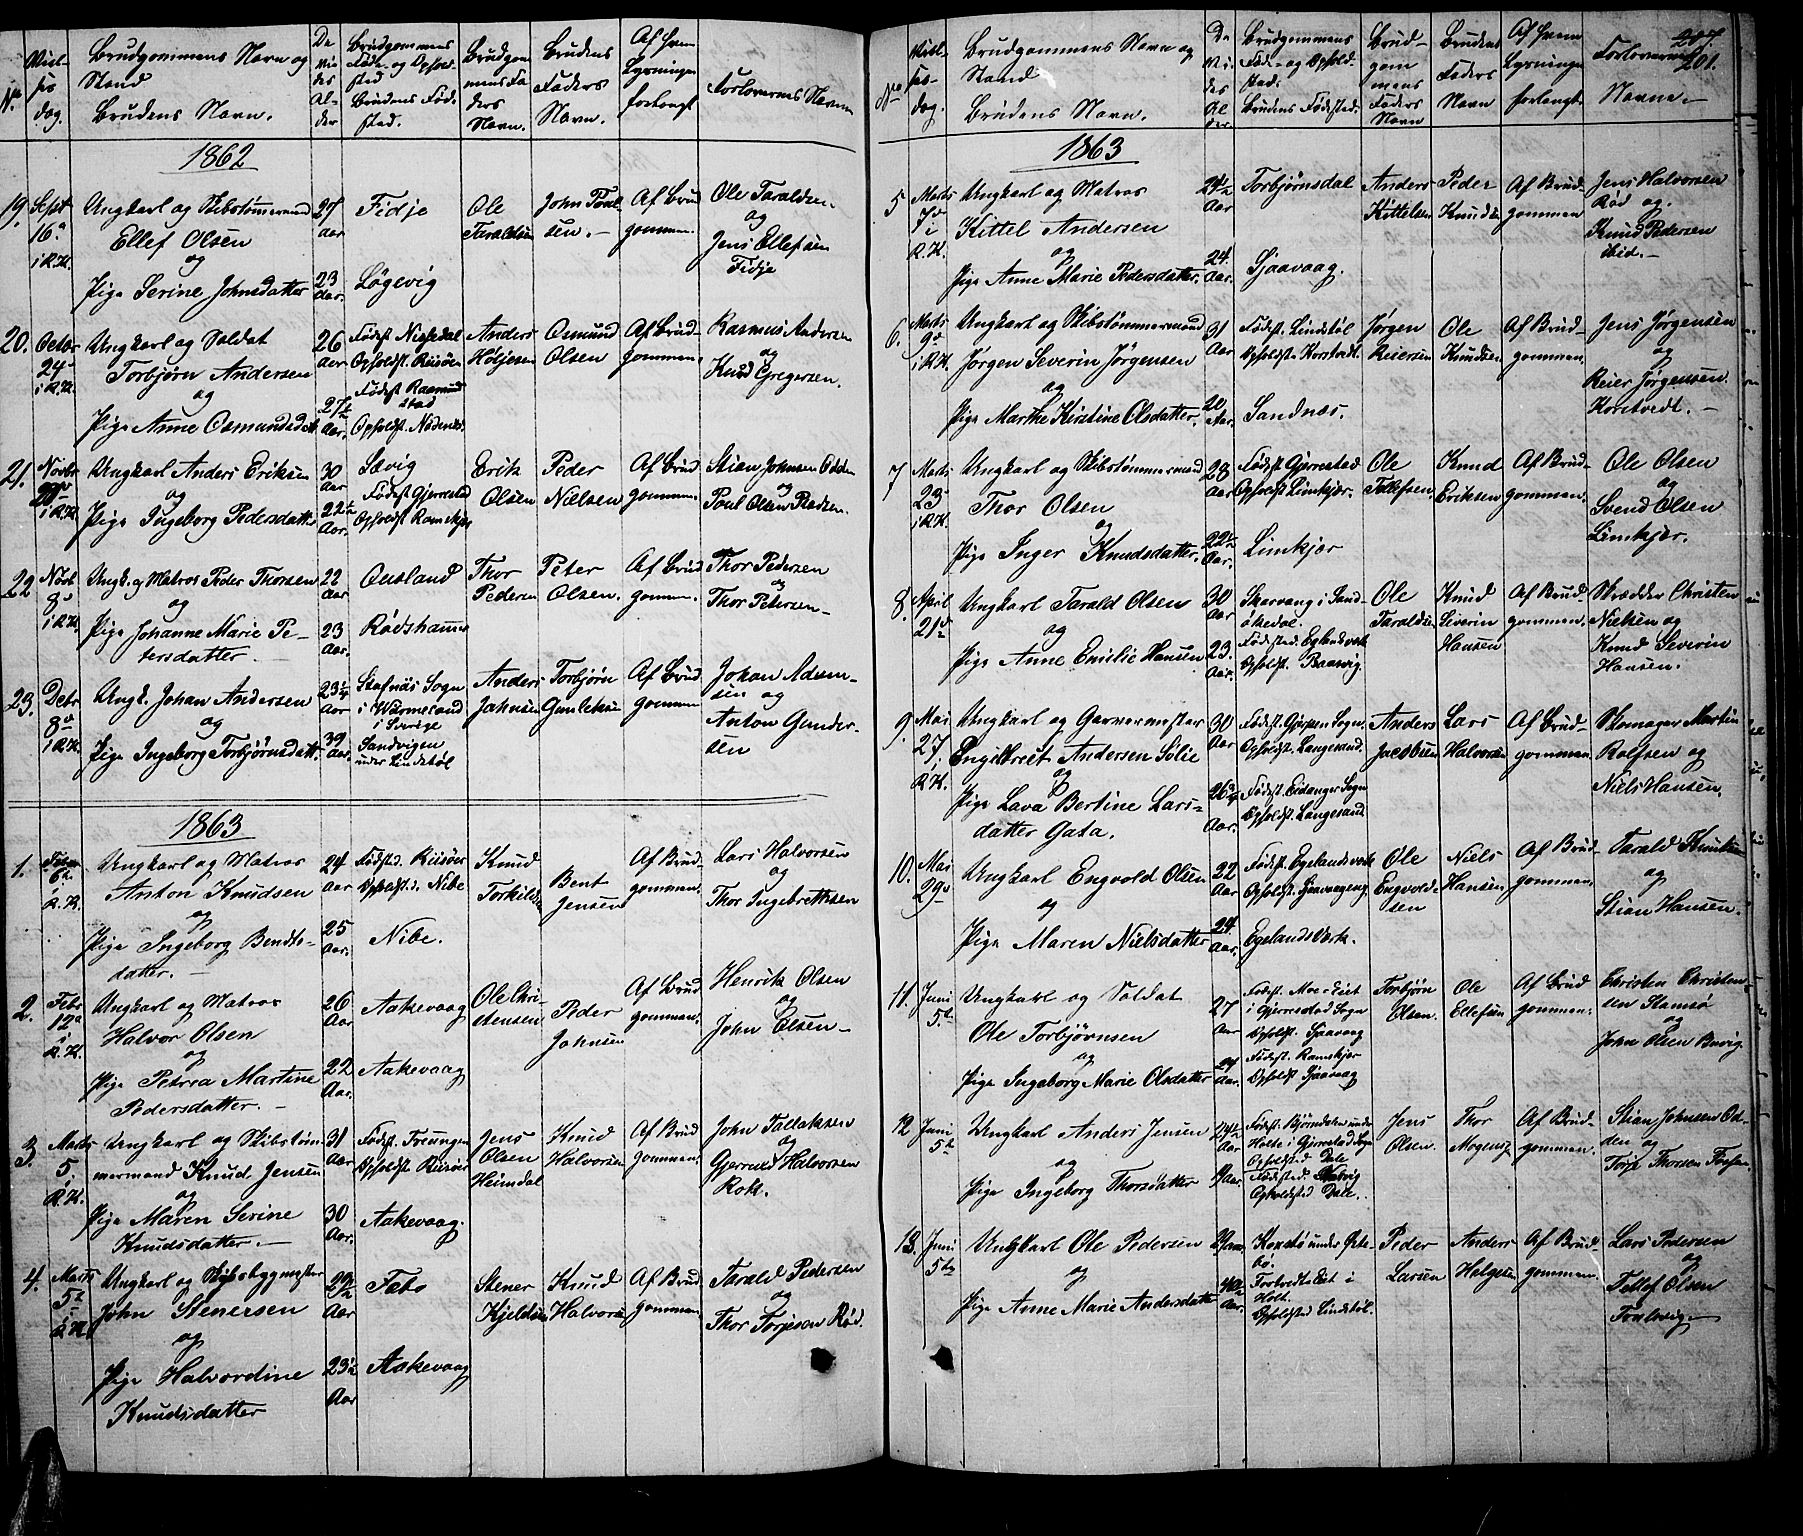 No
Viel-
ses
dag.
Brudgommens Navn og
Stand
Brudens Navn.
De
Vi
des
Al-
der
Brudgommens
Føde- og Ophold-
sted
Brudens Fød.
sted.
Brudgom
mens Fa
ders
Navn.
Brudens
Faders
Navn.
Af hvem
Lysningen
forlangt
Forlovernes Navne
1862
19. Sept
16.
i R.K.
Ungkarl og Skibstømmermand
Ellef Olsen
og
Pige Serine Johnsdatter
27
aar
23
Aar.
Fidje
Løgevig
Ole
Taraldsen
John
sen.
Af Brud
gommen.
Ole Taraldsen
og
Jens Ellefsen
Fidje
20. Octbr
24
i R.K.
Ungkarl og Soldat
Torbjørn Andersen
og
Pige Anne Osmundsdatt.
26
Aar
27½
Aar.
Fødest. Nissedal
Opholdst. Riisøer
Fødest. Raamund
stad
Opholdst. Nødenes
Anders
Høljesen
Osmund
Olsen
Af Brud-
gommen.
Rasmus Andersen
og
Knud Gregersen.
21. Novbr
i R.K.
Ungkarl Anders Eriksen
og
Pige Ingeborg Pedersdatter
30
Aar
22½
Aar.
Sævig
Fødest. Gjerrestad
Opholdst. Ramskjær
Erik
Olsen
Peder
Nielsen
Af Brud
gommen.
Stian Johnsen Odden
og
Poul Olsen Rødsen.
22 Novb
8
i R.K.
Ungk. og Matros Peder Thorsen
og
Pige Johanne Marie Pe-
tersdatter.
22
Aar
23
Aar.
Ousland
Rødshammer
Thor
Pedersen
Peter
Olsen.
Af Brud
gommen.
Thor Pedersen
og
Thor Petersen
23. Debr
8
i R.K.
Ungk. Johan Andersen
og
Pige Ingeborg Torbjørnsdatt.
23¼
Aar
39
Aar.
Skafnäs Sogn
i Wärmeland
i Sverige
Sandvigen
under Lindstøl
Anders
Jahnsen
Torbjørn
Gunleksen
Af Brud
gommen
Johan Adam-
sen og
Anton Gunder-
sen
1863
1. Febr
6
R.K.
Ungkarl og Matros
Anton Knudsen
og
Pige Ingeborg Bendts-
datter.
24
Aar
25
Aar.
Fødstd. Riisøer
Opholdstd. Nibe
Nibe.
Knud
Torkildsen
Bent
Jensen
Af Brud
gommen.
Lars Halvorsen
og
Thor Ingebrethsen
2. Febr
12
i
R.K.
Ungkarl og Matros
Halvor Olsen
og
Pige Petrea Martine
Pedersdatter.
26
Aar
22
Aar.
Aakevaag
Aakevaag
Ole Chri-
stensen
Peder
Johnsen
Af Brud
gommen.
Henrik Olsen
og
John Olsen
3. Marts
5
i
R.K.
Ungkarl og Skibstøm
mermand Knud Jensen
og
Pige Maren Serine
Knudsdatter.
31
Aar
30
Aar.
Fødst. Treungen
Opholdst. Riisøer
Aakevaag.
Jens
Olsen
Heimdal
Knud
Halvorsen
Af Brud
gommen.
John Tallaksen
og
Gjerrul Halvorsen
4. Marts
5
i
R.K.
Ungkarl og Skibsbygmester
John Stenersen
og
Pige Halvordine
Knudsdatter
29½
Aar
23½
Aar
Febo
Aakevaag
Stener
Kjeldsen
Knud
Halvorsen
Af Brud
gommen.
Tarald Pedersen
og
Thor Torjesen Rød.
No
Viel-
ses-
dag.
Brudgommens Navn og
Stand
Brudens Navn.
De
Vi
des
Al
der.
Brudgommens
Føde- og Ophold-
sted.
Brudens Fødested.
Brud-
gom
mens
Faders
Navn
Brudens
Faders
Navn
Af hvem
Lysningen
forlangt.
Forlovernes
Navne.
201.
1863
5 Marts
7
i
R.K.
Ungkarl og Matros
Kittel Andersen
og
Pige Anne Marie Pedersdatter.
24½
Aar
24.
Aar.
Torbjørnsdal
Sjaavaag.
Anders
Kittelsen
Peder
Knudsen
Af Brud-
gommen
Jens Halvorsen
Rød og
Knud Pedersen
ibid.
6. Marts
9
i R.K.
Ungkarl og Skibstømmermand
Jørgen Severin Jörgensen
og
Pige Marthe Kirstine Olsdatter.
31
Aar
20
Aar.
Fødest. Lindstøl
Opholdst. Korstvedt.
Sandnæs.
Jørgen
Reiersen
Ole
Knudsen
Af Brud-
gommen.
Jens Jörgensen
og
Reier Jørgensen.
Korstvedt.
7 Marts
23
i R.K.
Ungkarl og Skibstømmermand
Thor Olsen
og
Pige Inger Knudsdatter.
28
Aar
22½
Aar.
Fødest. Gjerrestad
Opholdst. Limkjær.
Limkjær
Ole
Tellefsen
Knud
Eriksen
Af Brud-
gommen.
Ole Olsen
og
Svend Olsen
Limkjær.
8. April
21
Ungkarl Tarald Olsen
og
Pige Anne Emilie Hansen
30
Aar
23.
Aar.
Skarvang i Sand-
økedal.
Fødested. Egelandsverk
Opholdst. Baasvig.
Ole
Taraldsen
Knud
Severin
Hansen
Af Brud
gommen.
Skrædder Christen
Nielsen og
Knud Severin
Hansen.
9. Mai
27
i
R.K.
Ungkarl og Garvermester
Engelbreet Andersen Solie
og
Pige Lava Bertine Lars-
datter Gata.
30
Aar
26¾
Aar.
Fødest. Gjerpen Sogn.
Opholdst. Langesund.
Fødest. Eidanger Sogn
Opholdst. Langesund.
Anders
Jacobsen
Lars
Halvorsen
Af Brud-
gommen.
Skomager Martin
Rolfsen og
Niels Hansen.
10. Mai
29
Ungkarl Engvold Olsen
og
Pige Maren Nielsdatter
22
Aar
24.
Aar.
Fødest. Egelandsverk
Opholdst. Sjaavaageng.
Egelands Verk.
Ole
Engvold-
sen
Niels
Hansen
Af Brud-
gommen.
Tarald Knudsen
og
Stian Hansen.
11. Juni
5
Ungkarl og Soldat
Ole Torbjørnsen
og
Pige Ingeborg Marie Olsdatter
27
Aar
29
Aar.
Fødest. Moe-Eiet
i Gjerrestad Sogn
Opholdst. Sjaavaag
Fødest. Ramskjær
Opholdst. Sjaavaag
Torbjørn
Olsen.
Ole
Ellefsen
Af Brud
gommen.
Christen Christen-
sen Stamsø
og
John Olsen Buvig
12 Juni
5
Ungkarl Anders Jensen
og
Pige Ingeborg Thorsdatter
24½
Aar
Aar.
Fødest. Bjørndalen under
Holte i Gjerrestad Sogn
Opholdsted Dale
Fødested.
Opholdsted Dale.
Jens
Olsen.
Thor
Mogens.
Af Brud-
gommen.
Stian Johnsen Od-
den og
Torje Thorsen
13. Juni
5
Ungkarl Ole Pedersen
og
Pige Anne Marie Andersdatter
Aar.
Aar.
under
ø.
i
Holt.
Opholdsted Lindstøl.
Peder
Larsen
Anders
Helgesen
Af Brud
gommen.
Lars Pedersen
og
Tellef Olsen